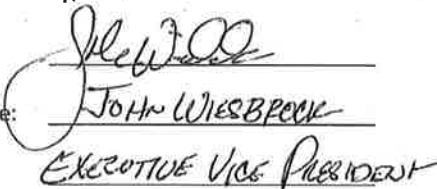 e:
JOHN WIESBROCK
EXECUTIVE VICE PRESIDENT